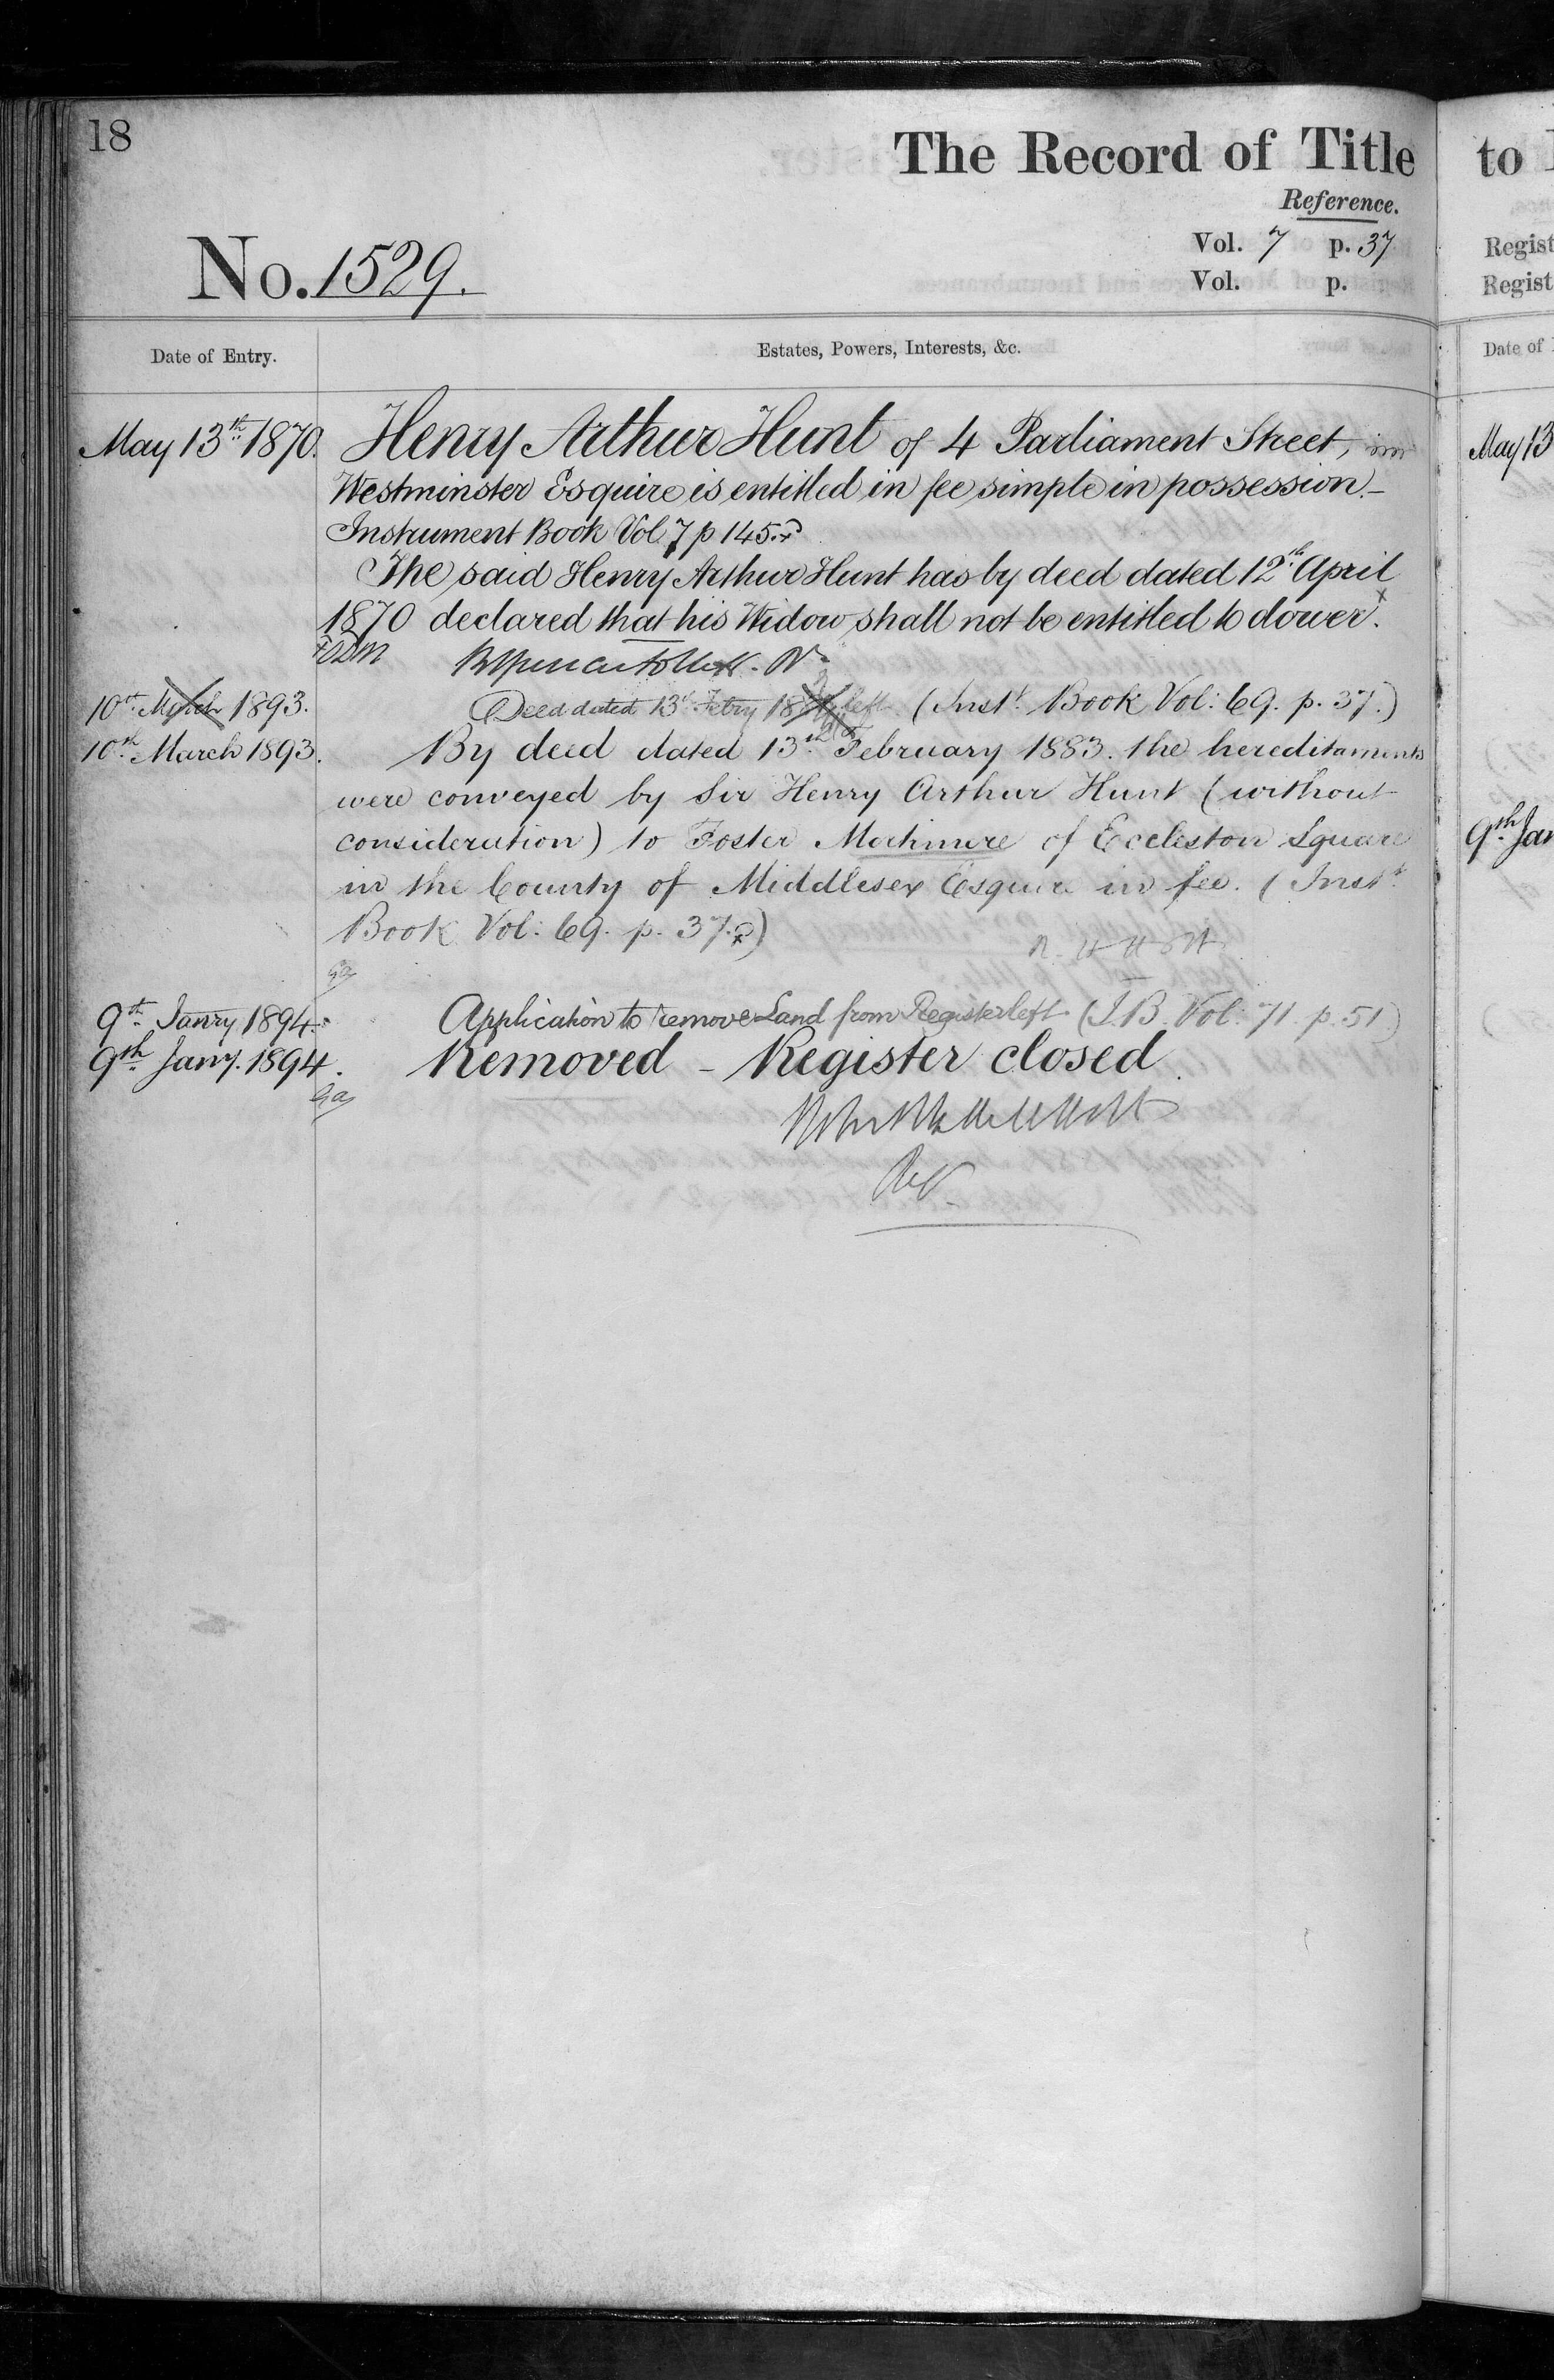 18
The Record of Title
Reference.
Vol. 7 p. 37
Vol. p.
No. 1529.
Date of Entry.
Estates, Powers, Interests, &c.
May 13th 1870. Henry Arthur Hunt of 4 Parliament Street, in
Westminster Esquire is entitled in fee simple in possession.—
Instrument Book Vol. 7 p 145.
The said Henry Arthur Hunt has by deed dated 12th April
1870 declared that his Widow shall not be entitled to dower.
10th March 1893. Deed dated 13th Febry 18 left (Inst. Book Vol: 69. p. 37.)
10th March 1893. By deed dated 13th February 1883. the hereditaments
were conveyed by Sir Henry Arthur Hunt (without
consideration) to Foster Mortimore of Eccleston Square
in the County of Middlesex Esquire in fee. (Inst.
Book Vol: 69. p. 37.)
9th Janry 1894. Application to remove Land from Register left (I.B. Vol: 71. p. 51)
9th Jany. 1894. Removed – Register closed.
to
Regist
Regist
Date of
May 13
9th Jan